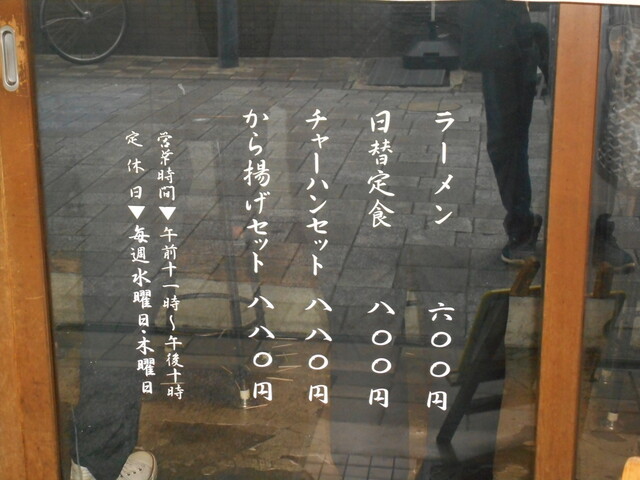 ラーメン 六〇〇円
日替定食 八〇〇円
チャーハンセット 八八〇円
から揚げセット 八八〇円
営業時間▼午前十一時～午後十時
定休日▼毎週水曜日・木曜日